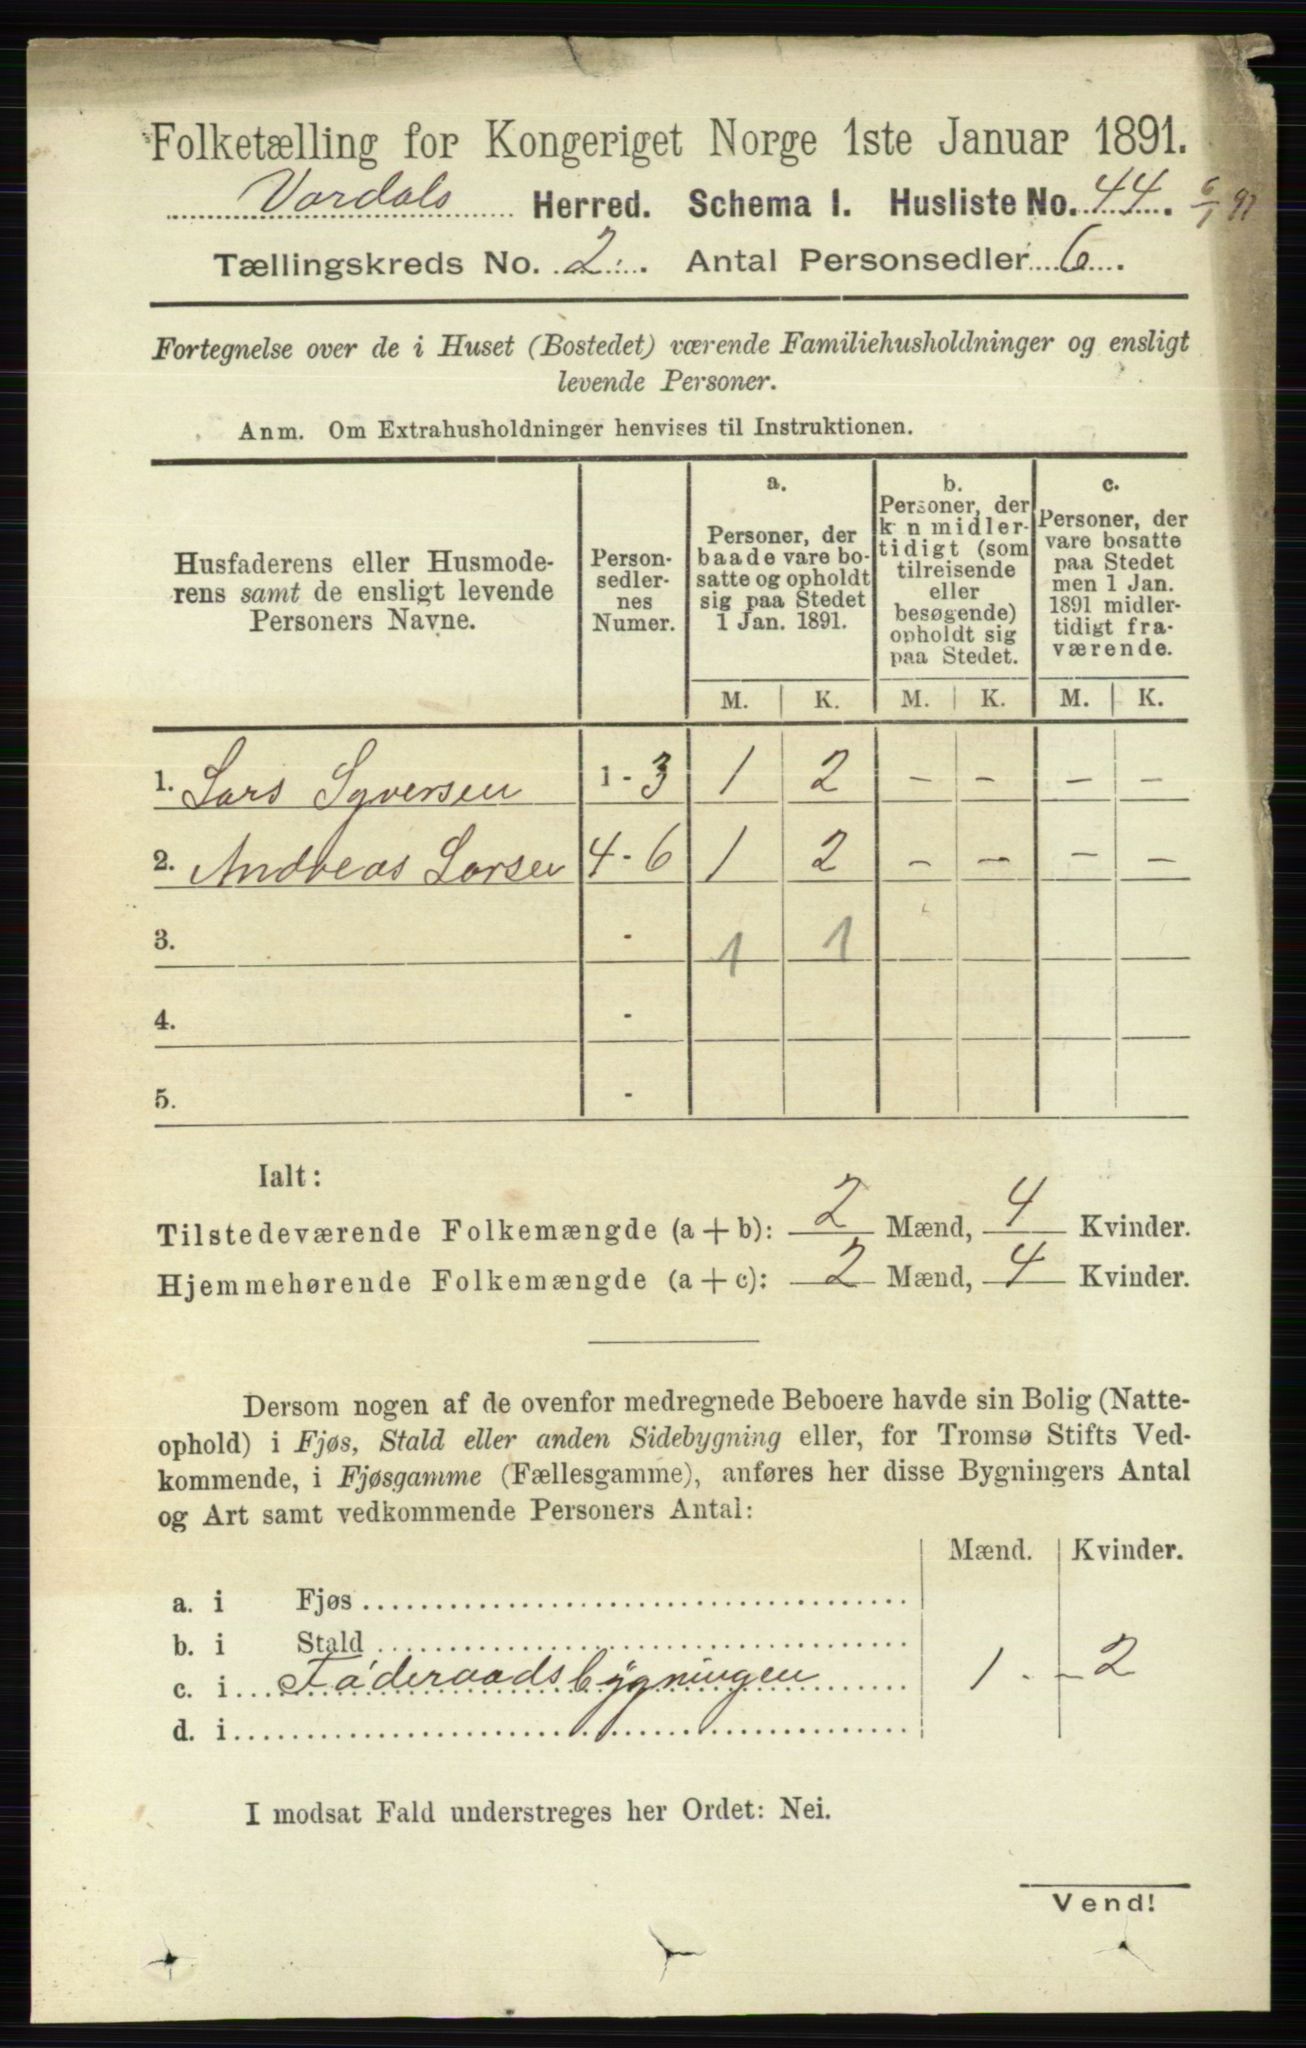 Folketælling for Kongeriget Norge 1ste Januar 1891.
Vardals Herred. Schema I. Husliste No. 44. 6/1 91
Tællingskreds No. 2. Antal Personsedler 6.
Fortegnelse over de i Huset (Bostedet) værende Familiehusholdninger og ensligt
levende Personer.
Anm. Om Extrahusholdninger henvises til Instruktionen.
Husfaderens eller Husmode-
rens samt de ensligt levende
Personers Navne.
Person-
sedler-
nes
Numer.
a.
Personer, der
baade vare bo-
satte og opholdt
sig paa Stedet
1 Jan. 1891.
b.
Personer, der
k n midler-
tidigt (som
tilreisende
eller
besøgende)
opholdt sig
paa Stedet.
c.
Personer, der
vare bosatte
paa Stedet
men 1 Jan.
1891 midler-
tidigt fra-
værende.
M. K. M. K. M. K.
1. Lars Syversen 1 - 3 1 2 – – – –
2. Andreas Larsen 4 - 6 1 2 – – – –
3. - 1 1
4. -
5. -
Ialt:
Tilstedeværende Folkemængde (a + b): 2 Mænd, 4 Kvinder.
Hjemmehørende Folkemængde (a + c): 2 Mænd, 4 Kvinder.
Dersom nogen af de ovenfor medregnede Beboere havde sin Bolig (Natte-
ophold) i Fjøs, Stald eller anden Sidebygning eller, for Tromsø Stifts Ved-
kommende, i Fjøsgamme (Fællesgamme), anføres her disse Bygningers Antal
og Art samt vedkommende Personers Antal:
Mænd. Kvinder.
a. i Fjøs
b. i Stald
c. i Föderaadsbygningen 1 - - 2
d. i
I modsat Fald understreges her Ordet: Nei.
Vend!